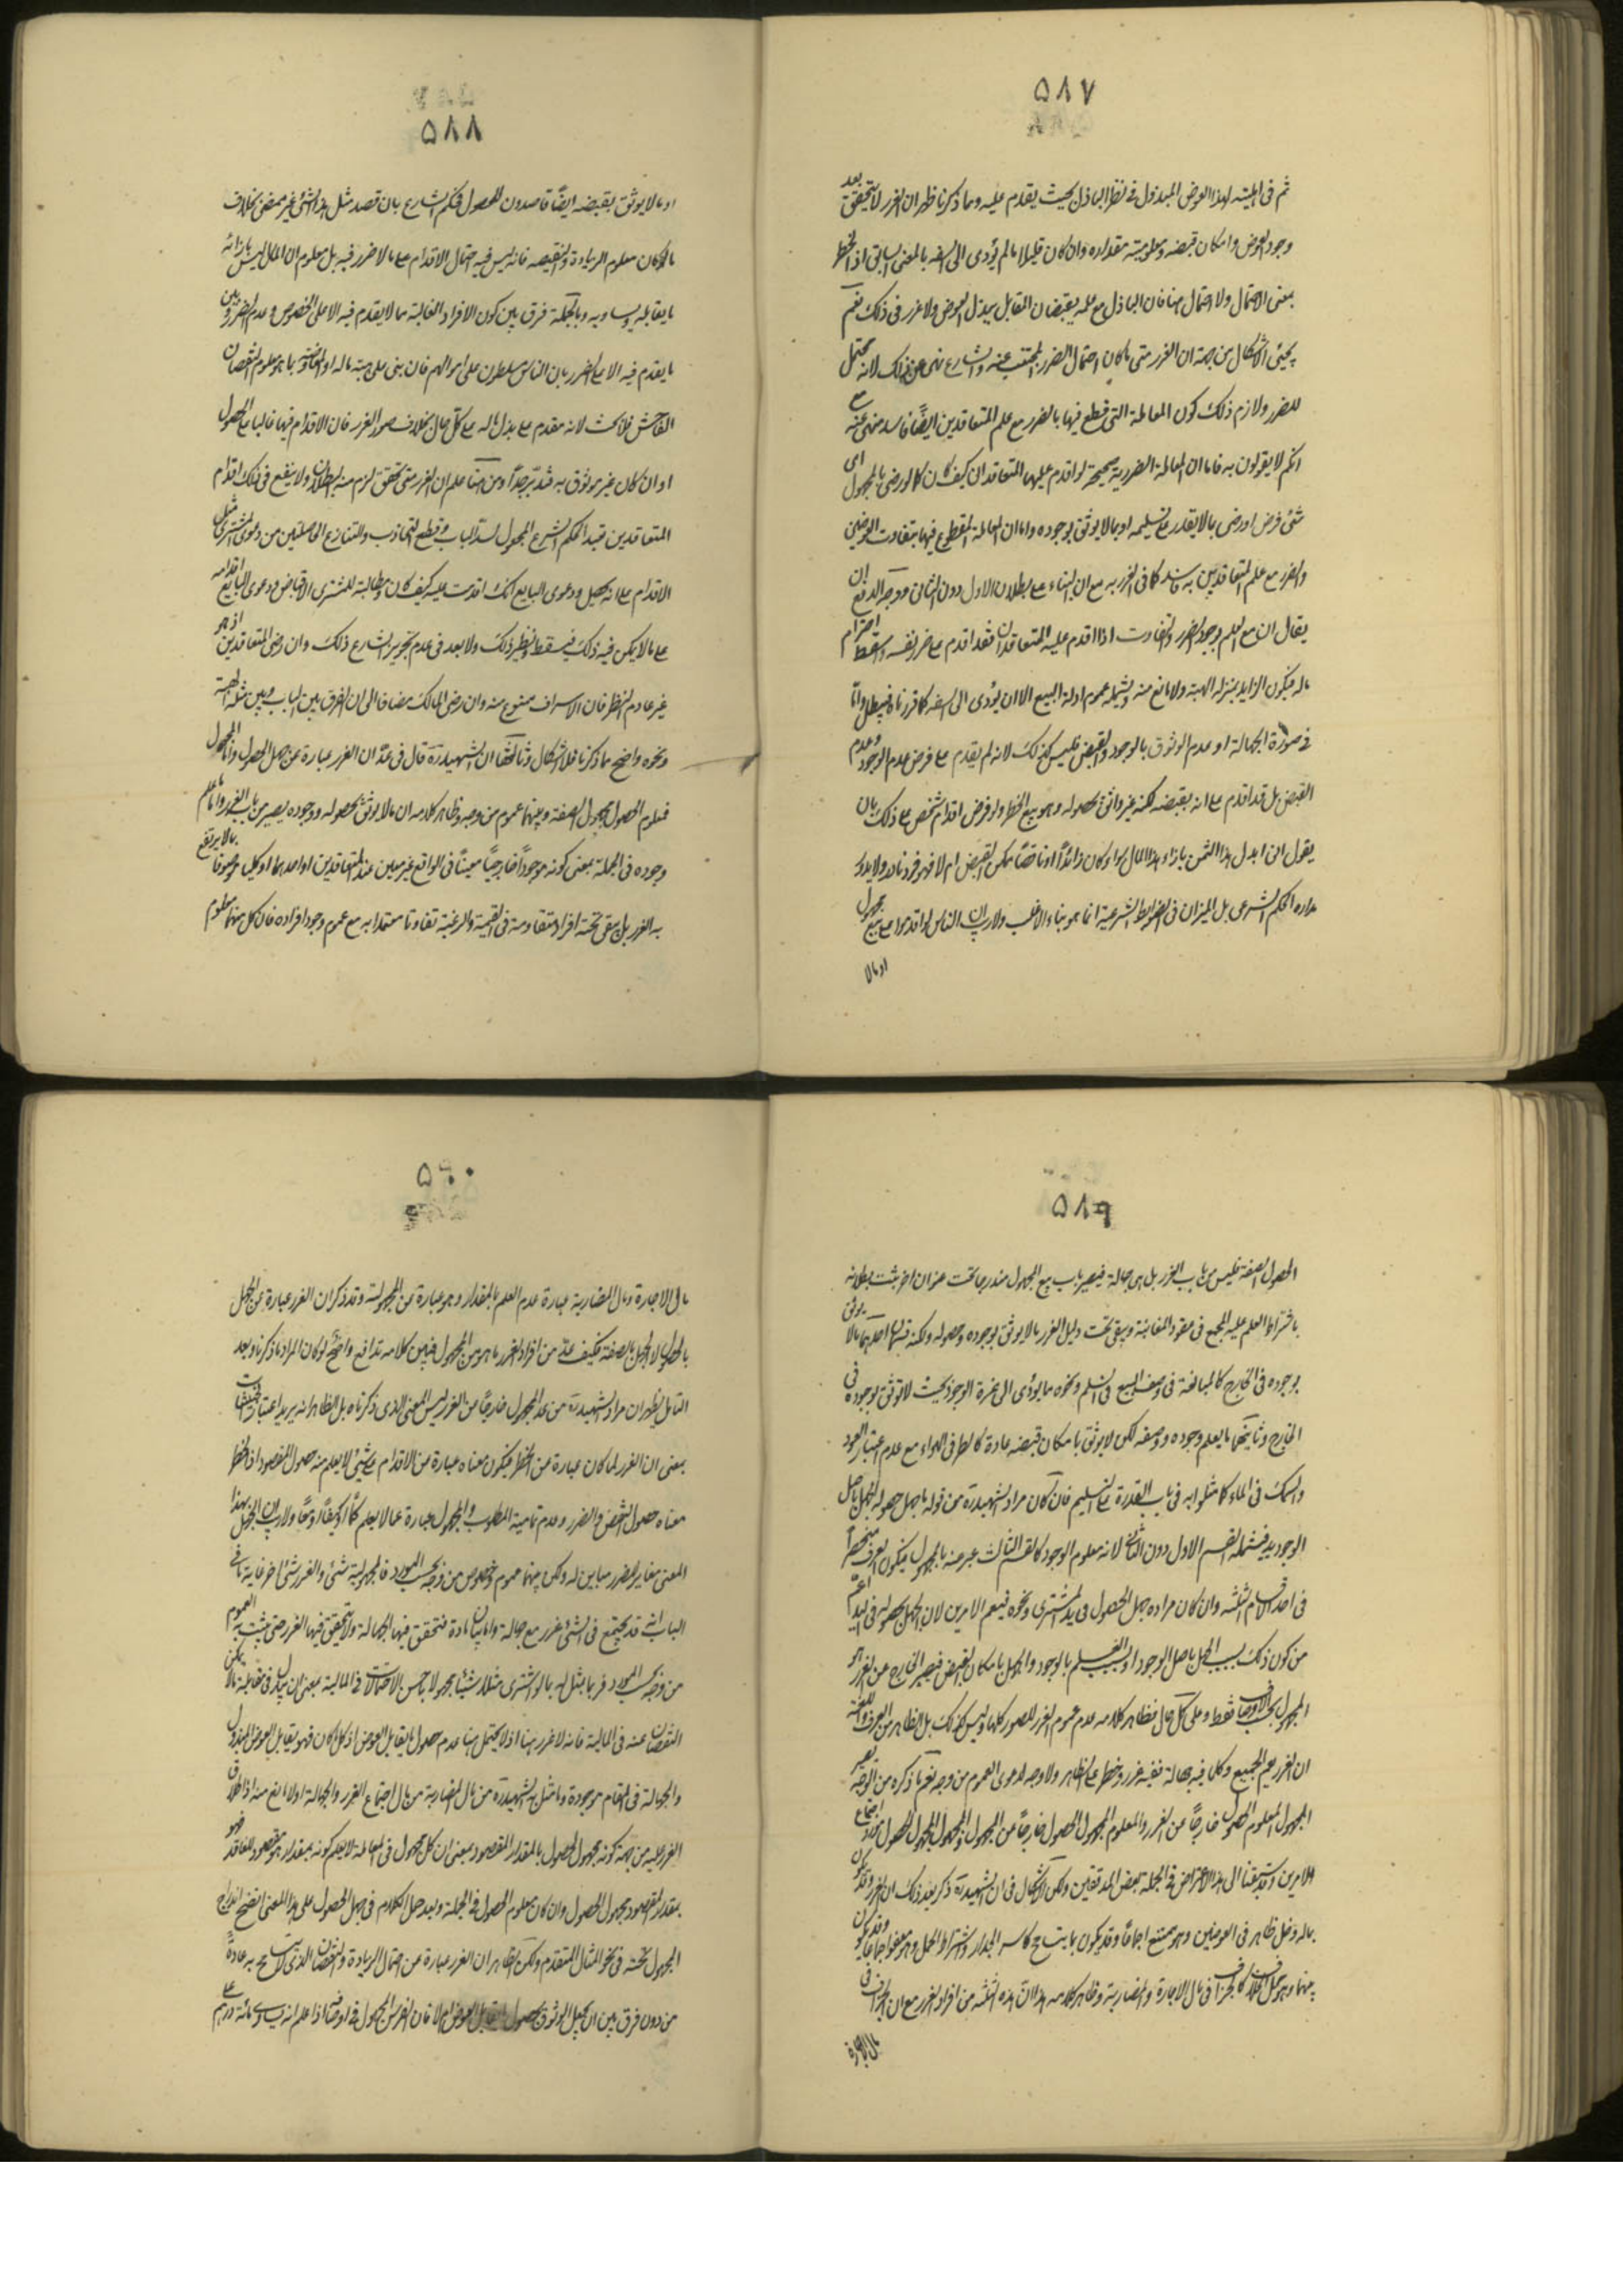 ۵۸۷
ثم فی اهلیته لهذا العوض المبذول فی نظر الباذل بحیث یقدم علیه ومما ذکرنا ظهر ان الغرر لا یتحقق بعد
وجود العوض وامکان قبضه ومعلومیة مقداره وان کان قلیلا ما لم یؤدی الی السفه بالمعنی السابق اذ الخطر
بمعنی الاحتمال ولا احتمال هنا فان الباذل مع علمه بنقصان المقابل یبذل العوض ولا غرر فی ذلک نعم
یجیئ الاشکال من جهة ان الغرر متی ما کان احتمال الضرر المجتنب عنه والشارع نهی عن ذلک لانه محتمل
للضرر ولازم ذلک کون المعاملة التی قطع فیها بالضرر مع علم المتعاقدین ایضًا فاسد منهی عنه مع
انکم لا یقولون به فاما ان المعاملة الضرریة صحیحة لو اقدم علیها المتعاقدان کیف کان کما لو رضی بالمجهول ای
شئ فرض او رضی بما لا یقدر علی تسلیمه او بما لا یوثق بوجوده واما ان المعاملة المقطوع فیها بتفاوت العوضین
والضرر مع علم المتعاقدین به فاسد کما فی الغرر به مع ان البناء علی بطلان الاول دون الثانی ووجه الدفع ان
یقال ان مع العلم بوجود الضرر والتفاوت اذا اقدم علیه المتعاقدان فقد اقدم علی ضرر نفسه واسقط احترام
ماله فیکون الزاید بمنزلة الهبة ولا مانع منه ویشمله عموم ادلة البیع الا ان یؤدی الی السفه کما قررناه فیبطل واما
فی صورة الجهالة او عدم الوثوق بالوجود والقبض فلیس کذلک لانه لم یقدم علی فرض عدم الوجود وعدم
القبض بل قد اقدم علی انه یقبضه لکنه غیر واثق بحصوله وهو بیع الخطر ولو فرض اقدام شخص علی ذلک بان
یقول انی ابذل هذا الثمن بازاء هذا المال سواء کان زائدًا او ناقصًا یمکن القبض ام لا فهو فرد نادر ولا یدور
مداره الحکم الشرعی بل المیزان فی الضوابط الشرعیة انما هو بناء الاغلب ولا ریب ان الناس لو اقدموا علی بیع مجهول
او مالا
۵۸۸
او ما لا یوثق بقبضه ایضًا قاصدون للحصول فحکم الشارع بان قصد مثل هذا الشئ غیر ممضی بخلاف
ما لو کان معلوم الزیادة والنقیصه فانه لیس فیه احتمال الاقدام علی ما لا ضرر فیه بل معلوم ان المال لیس بازائه
ما یقابله ویساویه وبالجملة فرق بین کون الافراد الغالبة مما لا یقدم فیه الا علی الخصوص وعدم الضرر وبین
ما یقدم فیه الا علی الضرر بان الناس مسلطون علی اموالهم فان بنی علی هبة ماله او المعاوضة بما هو معلوم النقصان
الفاحش فلا بحث لانه مقدم علی بذل ماله علی کل حال بخلاف صور الغرر فان الاقدام فیها غالبا علی الحصول
او ان کان غیر موثوق به فتدبّر جدًّا ومن هنا علم ان الغرر متی تحقق لزم منه البطلان ولا ینفع فی ذلک اقدام
المتعاقدین فبید الحکم الشرع المجهول لسد الباب وقطع التجاذب والتنازع الحاصلین من دعوی المشتری مثلا
الاقدام علی انه یحصل ودعوی البایع انک اقدمت علیه کیف کان ومطالبة المشتری الاقباض ودعوی البایع اقدامه
علی ما لا یمکن فیه ذلک فیسقط ونظیر ذلک ولا بعد فی عدم تجویز الشارع ذلک وان رضی المتعاقدین اذ هو
غیر عادم النظر فان الاسراف ممنوع منه وان رضی المالک مضافا الی ان الفرق بین الباب وبین مثل الهبة
ونحوه واضح مما ذکرنا فلا اشکال وثالثها ان الشهید ره قال فی عدّ ان الغرر عبارة عن جهل الحصول واما المجهول
فمعلوم الحصول مجهول الصفة وبینهما عموم من وجه وظاهر کلامه ان ما لا یوثق بحصوله ووجوده یصیر من باب الغرر واما ما علم
وجوده فی الجملة بمعنی کونه موجودًا خارجیًا معینًا فی الواقع غیر معین عند المتعاقدین او احدهما او کلیا موصوفا بما لا یرتفع
به الغرر بل یبقی تحته افراد متفاوتة فی القیمة والرغبة تفاوتا معتدا به مع عموم وجود افراده فان کل منهما معلوم
۵۸۹
الحصول الصفة فلیس من باب الغرر بل هی جهالة فیصیر باب بیع المجهول مندرجا تحت عنوان اخر یثبت بطلانه
باشتراط العلم علیه الجمع فی عقود المغابنة ویبقی تحت دلیل الغرر ما لا یوثق بوجوده وحصوله ولکنه قسمان احدهما ما لا یوثق
بوجوده فی الخارج کالمبالغة فی وصف المبیع فی السلم ونحوه مما یؤدی الی عزة الوجود بحیث لا توثق بوجوده فی
الخارج وثانیهما ما یعلم وجوده ووصفه لکن لا یوثق بامکان قبضه عادة کالطیر فی الهواء مع عدم اعتبار العود
والسمک فی الماء کما مثلوا به فی باب القدرة علی التسلیم فان کان مراد الشهید ره من قوله ما جهل حصوله الجهل باصل
الوجود یده فیشمله القسم الاول دون الثانی لانه معلوم الوجود کالقسم الثالث عبر عنه بالمجهول فیکون الغرر منحصرًا
فی احد الاقسام الثلثة وان کان مراده جهل الحصول فی ید المشتری ونحوه فیعم الامرین لان الجهل بحصوله فی الید اعم
من کون ذلک بسبب الجهل باصل الوجود او بسبب العلم بالوجود والجهل بامکان القبض فیصیر الخارج عن الغرر هو
المجهول بحسب الاوصاف فقط وعلی کل حال فظاهر کلامه عدم عموم الغرر للصور کلها ولیس کذلک بل الظاهر من العرف واللغة
ان الغرر یعم الجمیع وکلما فیه جهالة ففیه غرر وخطر علی الظاهر ولا وجه لدعوی العموم من وجه نعم ما ذکره من الوجه یعتبر
المجهول المعلوم الحصول خارجًا عن الغرر والمعلوم المجهول الحصول خارجًا من المجهول والمجهول المجهول الحصول مورد اجتماع
الامرین وقد سبقنا الی هذا الاعتراض فی الجملة بعض المدققین ولکن الاشکال فی ان الشهید ره ذکر بعد ذلک ان الغرر قد یکون
بما له دخل ظاهر فی العوضین وهو ممتنع اجماعًا وقد یکون بما یتسامح کاس الجدار واشتراط الحمل وهو معفو اجماعا وقد یکون
بینهما وهو محل الخلاف کالجزاف فی مال الاجارة والمضاربة وظاهر کلامه هذا ان هذه الثلثة من افراد الغرر مع ان الجزاف فی
مال الاجارة
۵۹۰
مال الاجارة ومال المضاربة عبارة عدم العلم بالمقدار وهو عبارة عن المجهولیة وقد ذکر ان الغرر عبارة عن الجهل
بالحصول لا الجهل بالصفة فکیف عدّ من افراد الغرر ما هو من المجهول فبین کلامه تدافع واضح لو کان المراد ما ذکرنا وبعد
التامل یظهر ان مراد الشهید ره من عد المجهول خارجًا من الغرر لیس المعنی الذی ذکرناه بل الظاهر انه یرید اعتبار الحیثیات
بمعنی ان الغرر لما کان عبارة عن الخطر فیکون معناه عبارة من الاقدام علی شیئ لا یعلم منه حصول المقصود اذ الخطر
معناه حصول النقص والضرر وعدم تمامیة المطلوب والمجهول عبارة عما لا یعلم کمًّا او کیفًا او وصفًا ولا ریب ان الجهل بهذا
المعنی مغایر للضرر مباین له ولکن بینهما عموم وخصوص من وجه بحسب المورد فالمجهولیة شئ والغرر شئ اخر غایة ما فی
الباب انه قد یجتمع فی الشئ غرر مع جهالة واما بیان مادة فتحقق فیها الجهالة ولا یتحقق فیها الغرر حتی یثبت به العموم
من وجه بحسب المورد فربما یمثل له بما لو اشتری مثلا شیئا مجهولا باحسن الاحتمالات فی المالیة بمعنی ان یبذل فی مقابلة ما لا یمکن
النقصان عنه فی المالیة فانه لا غرر هنا اذ لا یحتمل هنا عدم حصول ما یقابل العوض اذ کل ما کان فهو یقابل العوض المبذول
والجهالة فی المقام موجودة وما مثل به الشهید ره من مال المضاربة من مال اجتماع الغرر والجهالة اولا مانع منه اذ اطلاق
الغرر علیه من جهة کونه مجهول الحصول بالمقدار المقصود بمعنی ان کل مجهول فی المعاملة لا یعلم کونه بمقدار هو مقصود للعاقد فهو
بمقدار المقصود مجهول الحصول وان کان معلوم الحصول فی الجملة وبعد حمل الکلام فی جهل الحصول علی هذا المعنی اتضح اندراج
المجهول تحته فی نحو المثال المتقدم ولکن الظاهر ان الغرر عبارة عن احتمال الزیادة والنقصان الذی لا یتسامح به عادةً
من دون فرق بین ان یحصل الوثوق بحصول ما یقابل العوض ام لا فان الفرس المجهول فی اوصافه اذا علم انه یسوی مائة درهم علی